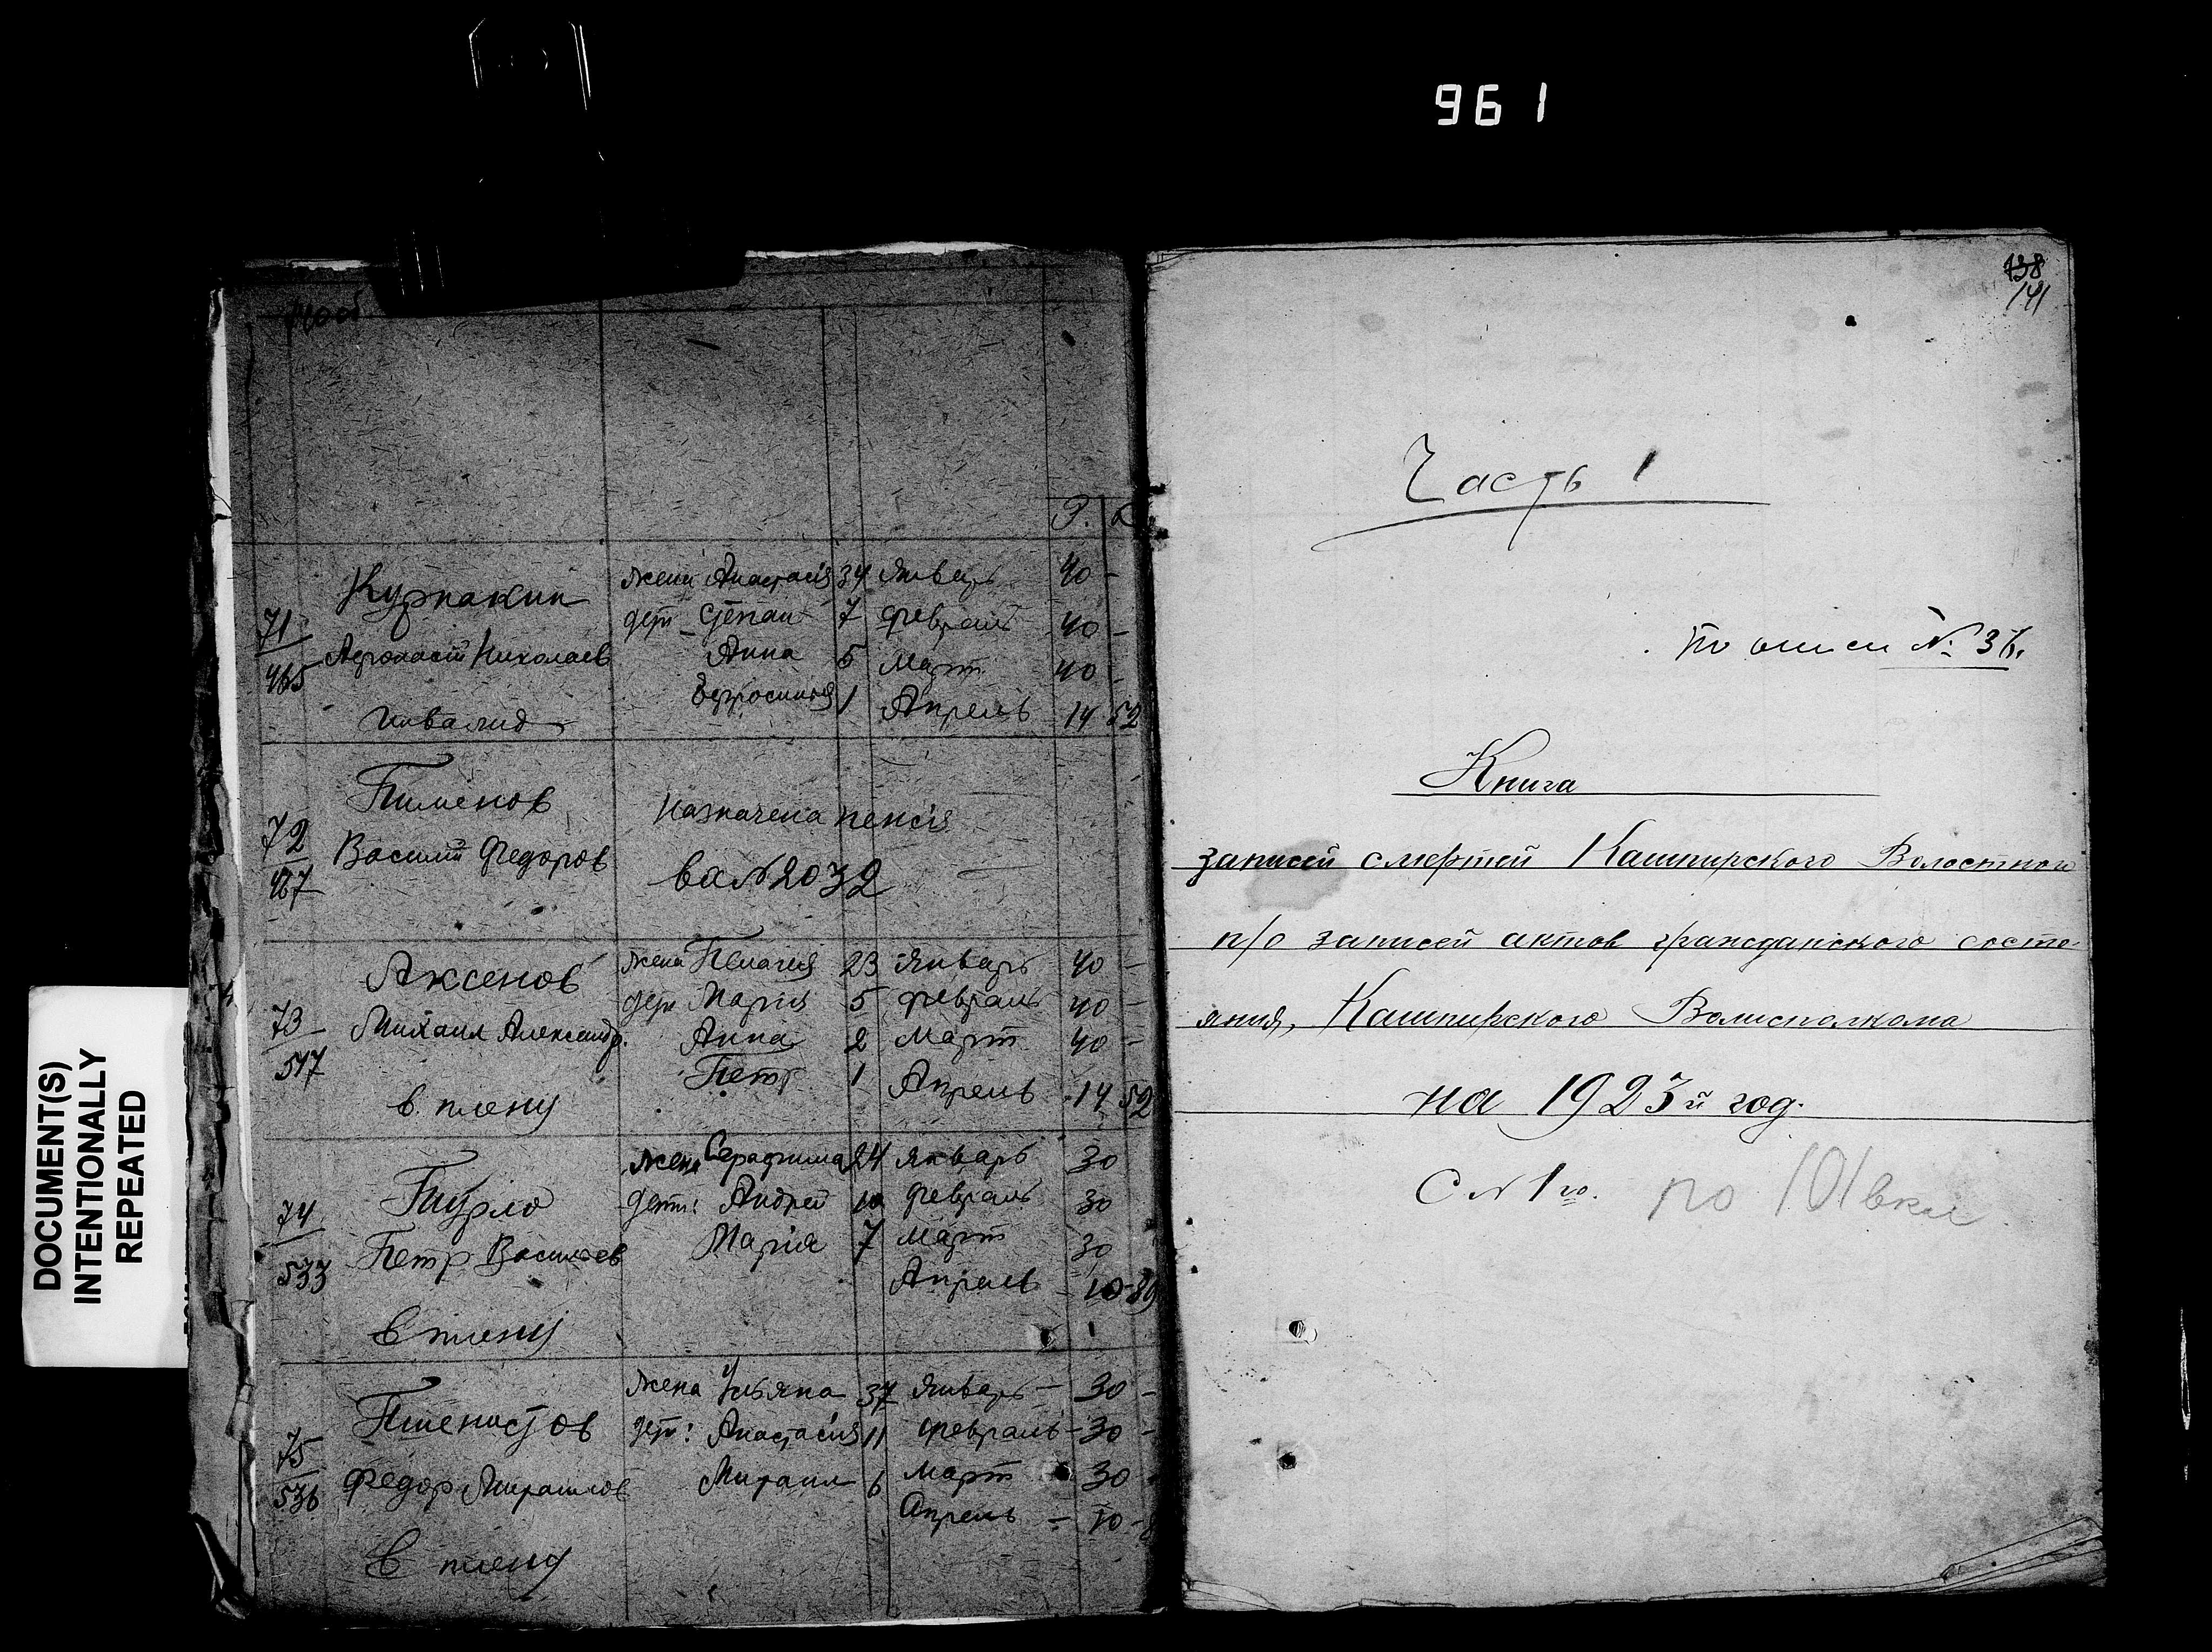 961
DOCUMENT(S)
INTENTIONALLY
REPEATED
Р. К
71
465
Курпакин
Николаев
инвалид
жена Анастасия 34 Январь 40 -
дети Степан 7 Февраль 40 -
Анна 5 Март 40 -
Ефросиния 1 Апрель 14 52
72
467
Пименов
Василий Федоров
назначена пенсия
2032
73
517
Аксенов
Михаил Александр.
в плену
жена Пелагия 23 Январь 40 -
дети Мария 5 Февраль 40 -
Анна 2 Март 40 -
Петр 1 Апрель 14 52
74
533
Петр Васильев
в плену
жена Серафима 24 Январь 30
дети: Андрей 10 Февраль 30
Мария 7 Март 30
Апрель 10-89
75
536
Федор
в плену
жена Ульяна 37 Январь - 30 -
дети: Анастасия 11 Февраль - 30 -
Михаил 6 Март 30 -
Апрель - 10 - 8
138
141
Часть 1
По описи №
Книга
записей смертей Кашпирского Волостного
п/о записей актов гражданского состо-
яния, Кашпирского Волисполкома
на 1923й год.
С № 1го. по 101 вкл